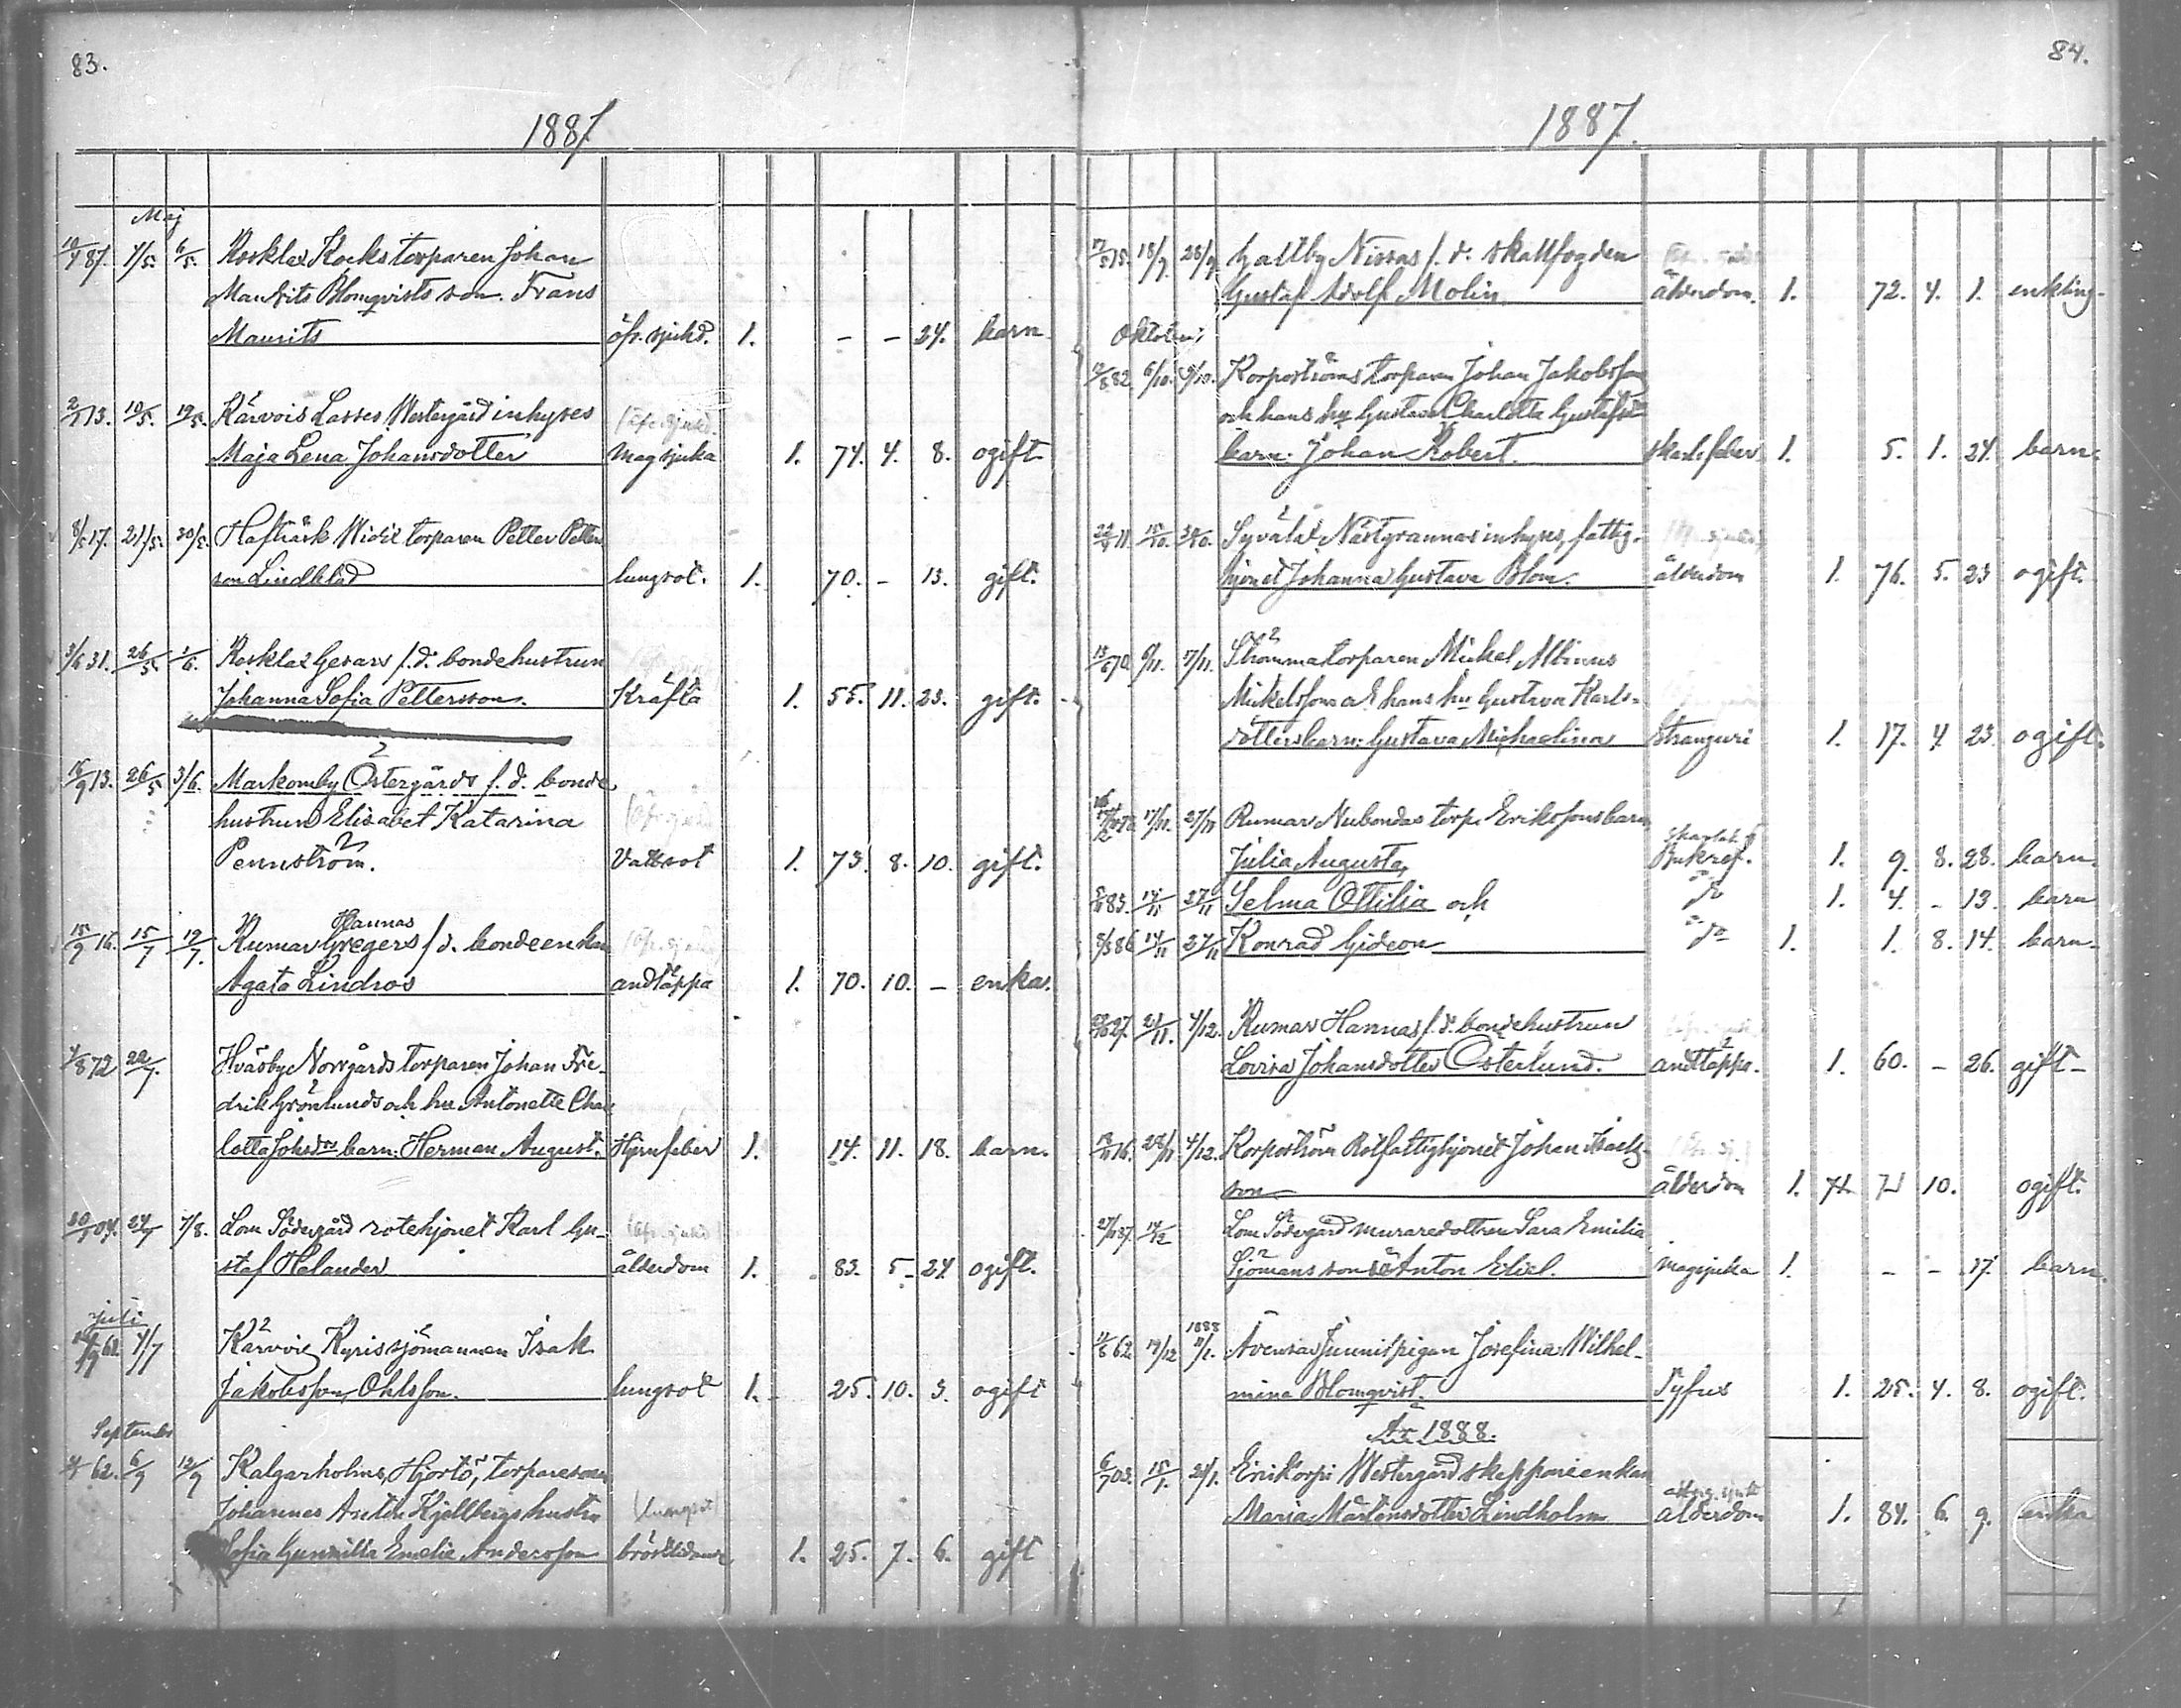 83.
1887
Maj
10/4 87. 4/5. 6/5. Rosklax Kocks torparen Johan
Maurits Blomqvists son. Frans
Maurits öfr. sjukd. 1. - - 24. barn
2/1 13. 10/5. 19/5. Kärvois Lasses Westergård inhyses (öfr. sjukd.
Maja Lena Johansdotter magsjuka 1. 74. 4. 8. ogift
8/5 17. 21/5. 30/5. Hafträsk Widix torparen Petter Petters
son Lindblad lungsot. 1. 70. - 13. gift.
3/6 31. 26/5. 1/6. Rosklax Gesars f.d. bondehustrun
Johanna Sofia Pettersson. Kräfta 1. 55. 11. 23. gift.
16/9 13. 26/5 3/6. Markomby Östergårds f.d. bonde
hustrun Elisabet Katarina
Pennström. Vattsot 1. 73. 8. 10. gift.
Hannas
15/9 16. 15/7 19/7. Rumar Gregers f.d. bondeenkan
Agata Lindros andtäppa 1. 70. 10. - enka.
4/8 72 22/7. Hväsby Norrgårds torparen Johan Fre-
drik Grönlunds och hu Antonette Char
lotta Johsdrs barn: Herman August. Hjernfeber 1. 14. 11. 18. barn.
30/1 04. 24/7 7/8. Lom Södergård rotehjonet Karl Gu-
staf Helander ålderdom 1. 83. 5. 24 ogift.
Juli
62. 4/7 Kärvois Kyris sjömannen Isak
Jakobsson Ohlsson. lungsot 1. 25. 10. 3. ogift
September
62. 6/9 12/9 Kalgarholms, Hjortö, torparesonen
Johannes Anton Kjellbergs hustru (lungsot)
Sofia Gunnilla Emelie Andersson bröstlidande 1. 25. 7. 6. gift
84.
1887.
17/5 15. 18/9. 28/9. Galtby Nissas f.d. skallfogden
Gustaf Adolf Molin ålderdom. 1. 72. 4. 1. enkling
Oktober;
12/8 82. 6/10. 9/10. Korpoströms torparen Johan Jakobsson
och hans hu Gustava Charlotta Gustafsd
barn: Johan Robert. skarl. feber 1. 5. 1. 24. barn.
22/4 11. 15/10. 30/10. Syvälax Nästgrannas inhyses, fattig-
hjonet Johanna Gustava Blom. ålderdom 1. 76. 5. 23 ogift.
13/6 70. 6/11. 7/11. Strömma torparen Mickel Albinus
Mickelsson och hans hu Gustava Karls-
dotters barn: Gustava Michaelina Stranguri 1. 17. 4 23 ogift.
17/11. 27/11 Rumar Nubondas torp. Erikssons barn
Julia Augusta, skarlak. f Bukref. 1. 9. 8. 28. barn.
83. 14/11 27/11 Selma Ottilia och do 1. 4. - 13. barn
86 14/11 27/11 Konrad Gideon do 1. 1. 8. 14. barn.
27. 21/11. 4/12. Rumar Hannas f.d. bondehustrun
Lovisa Johansdotter Österlund. andtäppa. 1. 60. - 26. gift-
16. 28/11 4/12. Korpoström Rotfattighjonet Johan Isacks-
son ålderdom 1. 71 71 10. ogift.
27/11 87. 14/12 Lom Södergård muraredottren Sara Emilia
Sjömans son Anton Eliel. magsjuka 1. - - 17. barn.
1888
11/8 62. 19/12 11/1. Avensar Junnis pigan Josefina Wilhel-
mina Blomqvist. Tyfus 1. 25. 4. 8. ogift.
År 1888.
6/7 03. 15/1. 24/1. Eriktorps Westergård skeppareenkan
Maria Mårtensdotter Lindholm ålderdom 1. 84. 6. 9. enka
1